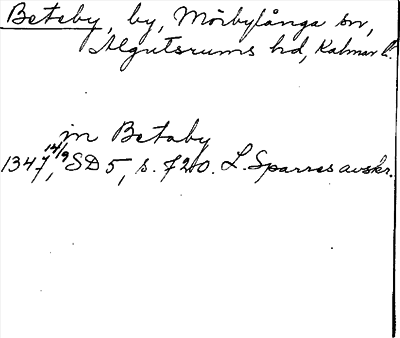 Beteby, by, Mörbylånga sn,
Algutsrums hd, Kalmar l.
in Betaby
1347 14/9, SD 5, s. 720. L. Sparres avskr.